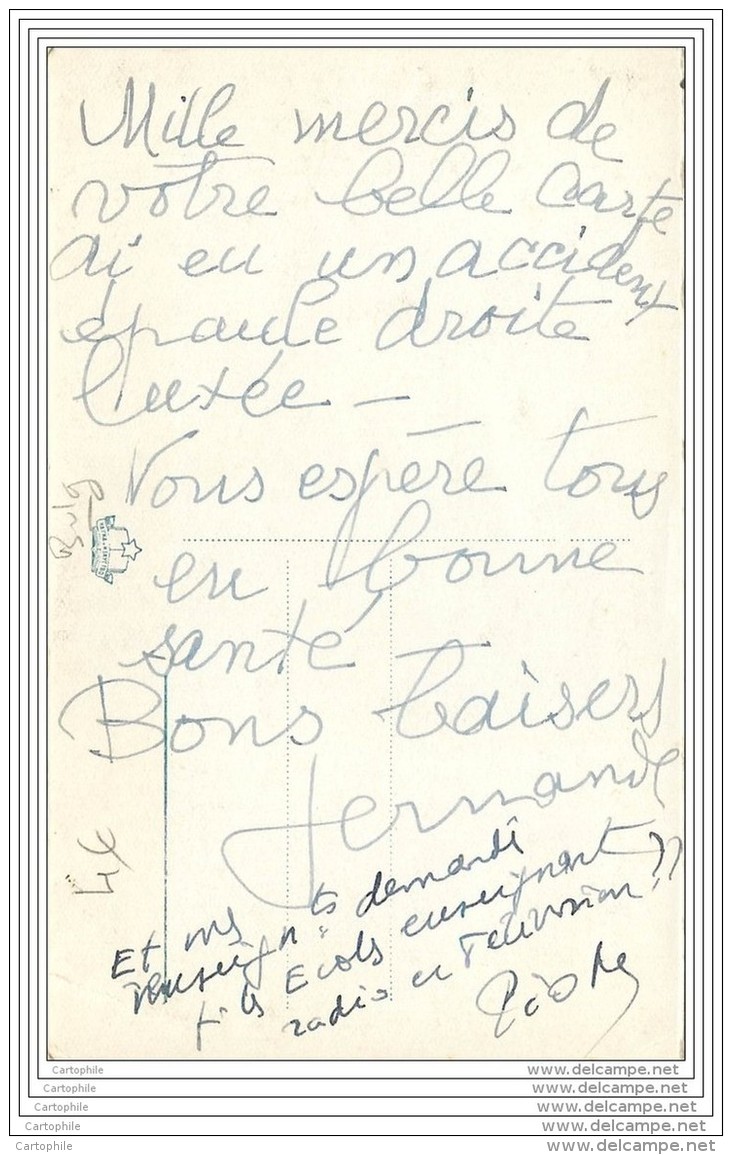 Mille mercis de
votre belle carte
ai eu un accident
épaule droite
luxée —
Vous espère tous
en bonne
santé
Bons baisers
Fernande
Et mes
renseignts demandés
les Ecols enseignant
radio et Télévision ??
Bulg
4€
Cartophile www.delcampe.net
Cartophile www.delcampe.net
Cartophile www.delcampe.net
Cartophile www.delcampe.net
Cartophile www.delcampe.net